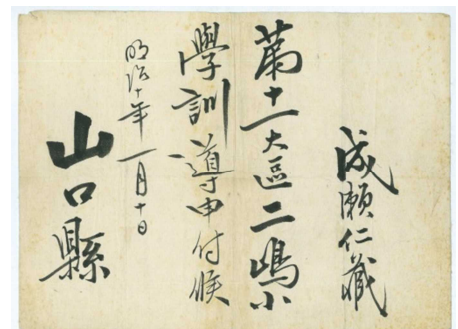 成瀬仁藏
第十一大區二嶋小
學訓導申付候
明治十年一月十日
山口縣